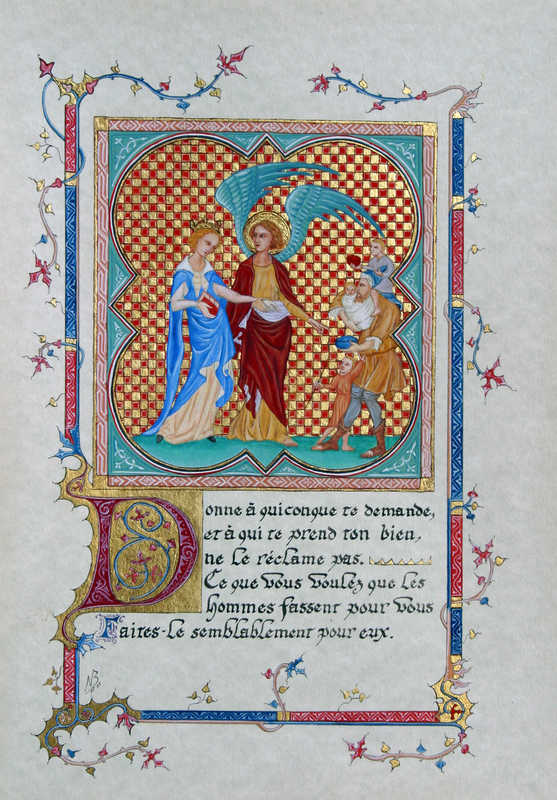 Donne à quiconque te demande,
et à qui te prend ton bien,
ne le réclame pas.
Ce que vous voulez que les
hommes fassent pour vous
Faites-le semblablement pour eux.